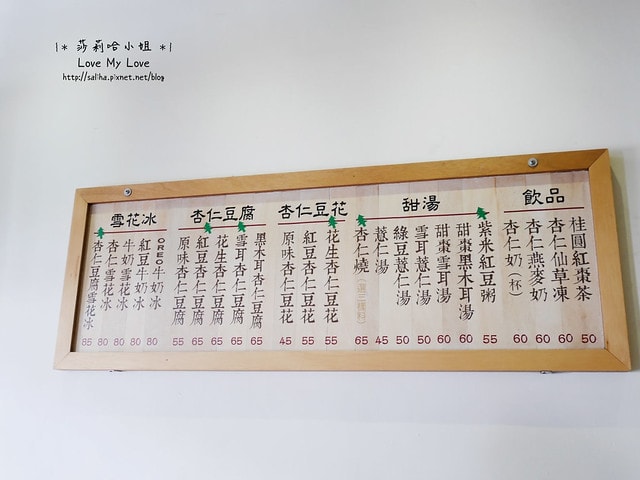 |* 莎莉哈小姐 *|
Love My Love
http://saliha.pixnet.net/blog
飲品
桂圓紅棗茶 50
杏仁仙草凍 60
杏仁燕麥奶 60
杏仁奶(杯) 60
甜湯
紫米紅豆粥 55
甜棗黑木耳湯 60
甜棗雪耳湯 60
雪耳薏仁湯 50
綠豆薏仁湯 50
薏仁湯 45
杏仁燒 65
杏仁豆花
花生杏仁豆花 55
紅豆杏仁豆花 55
原味杏仁豆花 45
杏仁豆腐
黑木耳杏仁豆腐 65
雪耳杏仁豆腐 65
花生杏仁豆腐 65
紅豆杏仁豆腐 65
原味杏仁豆腐 55
雪花冰
OREO牛奶冰 80
紅豆牛奶冰 80
牛奶雪花冰 80
杏仁雪花冰 80
杏仁豆腐雪花冰 85